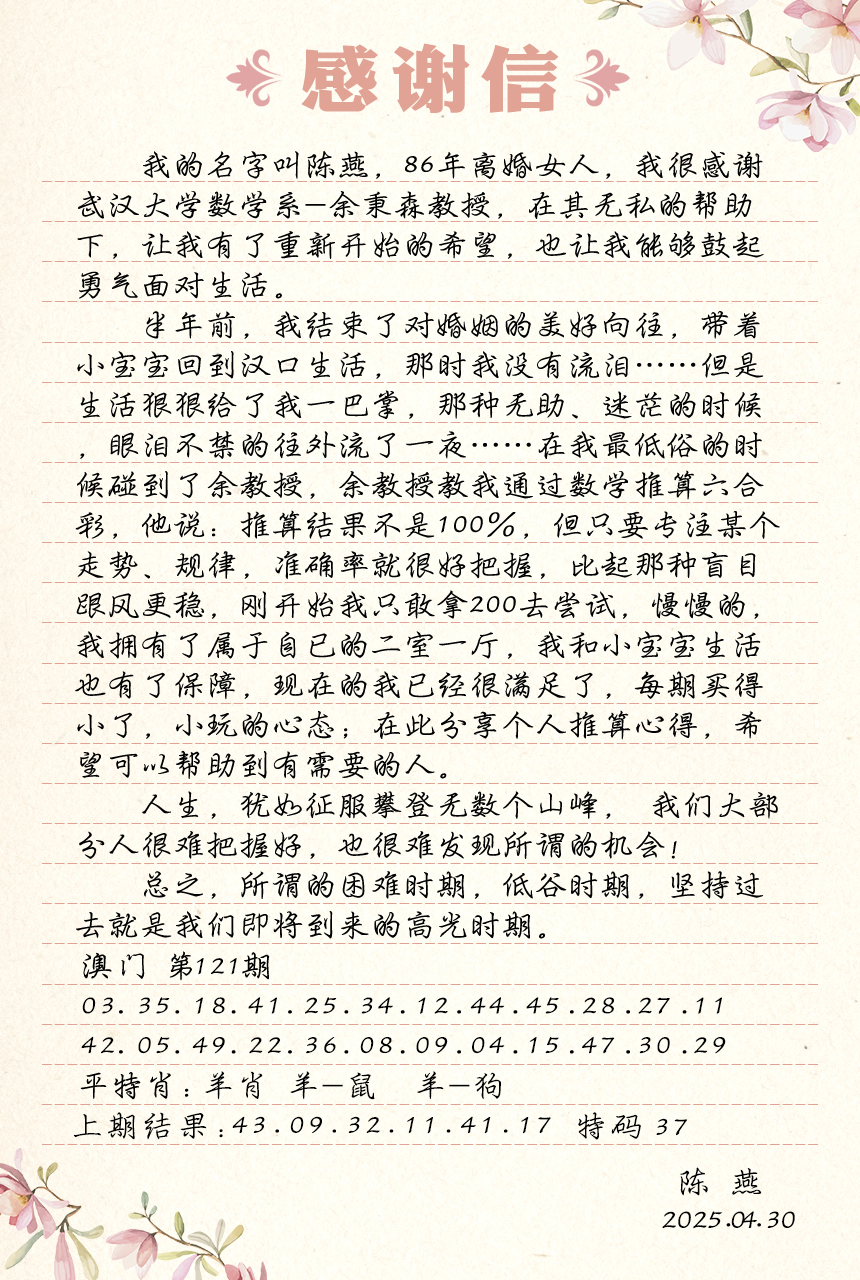 感谢信
我的名字叫陈燕，86年离婚女人，我很感谢
武汉大学数学系—余秉森教授，在其无私的帮助
下，让我有了重新开始的希望，也让我能够鼓起
勇气面对生活。
半年前，我结束了对婚姻的美好向往，带着
小宝宝回到汉口生活，那时我没有流泪……但是
生活狠狠给了我一巴掌，那种无助、迷茫的时候
，眼泪不禁的往外流了一夜……在我最低俗的时
候碰到了余教授，余教授教我通过数学推算六合
彩，他说：推算结果不是100%，但只要专注某个
走势、规律，准确率就很好把握，比起那种盲目
跟风更稳，刚开始我只敢拿200去尝试，慢慢的，
我拥有了属于自已的二室一厅，我和小宝宝生活
也有了保障，现在的我已经很满足了，每期买得
小了，小玩的心态；在此分享个人推算心得，希
望可以帮助到有需要的人。
人生，犹如征服攀登无数个山峰， 我们大部
分人很难把握好，也很难发现所谓的机会！
总之，所谓的困难时期，低谷时期，坚持过
去就是我们即将到来的高光时期。
澳门 第121期
03.35.18.41.25.34.12.44.45.28.27.11
42.05.49.22.36.08.09.04.15.47.30.29
平特肖：羊肖 羊—鼠 羊—狗
上期结果：43.09.32.11.41.17 特码 37
陈 燕
2025.04.30